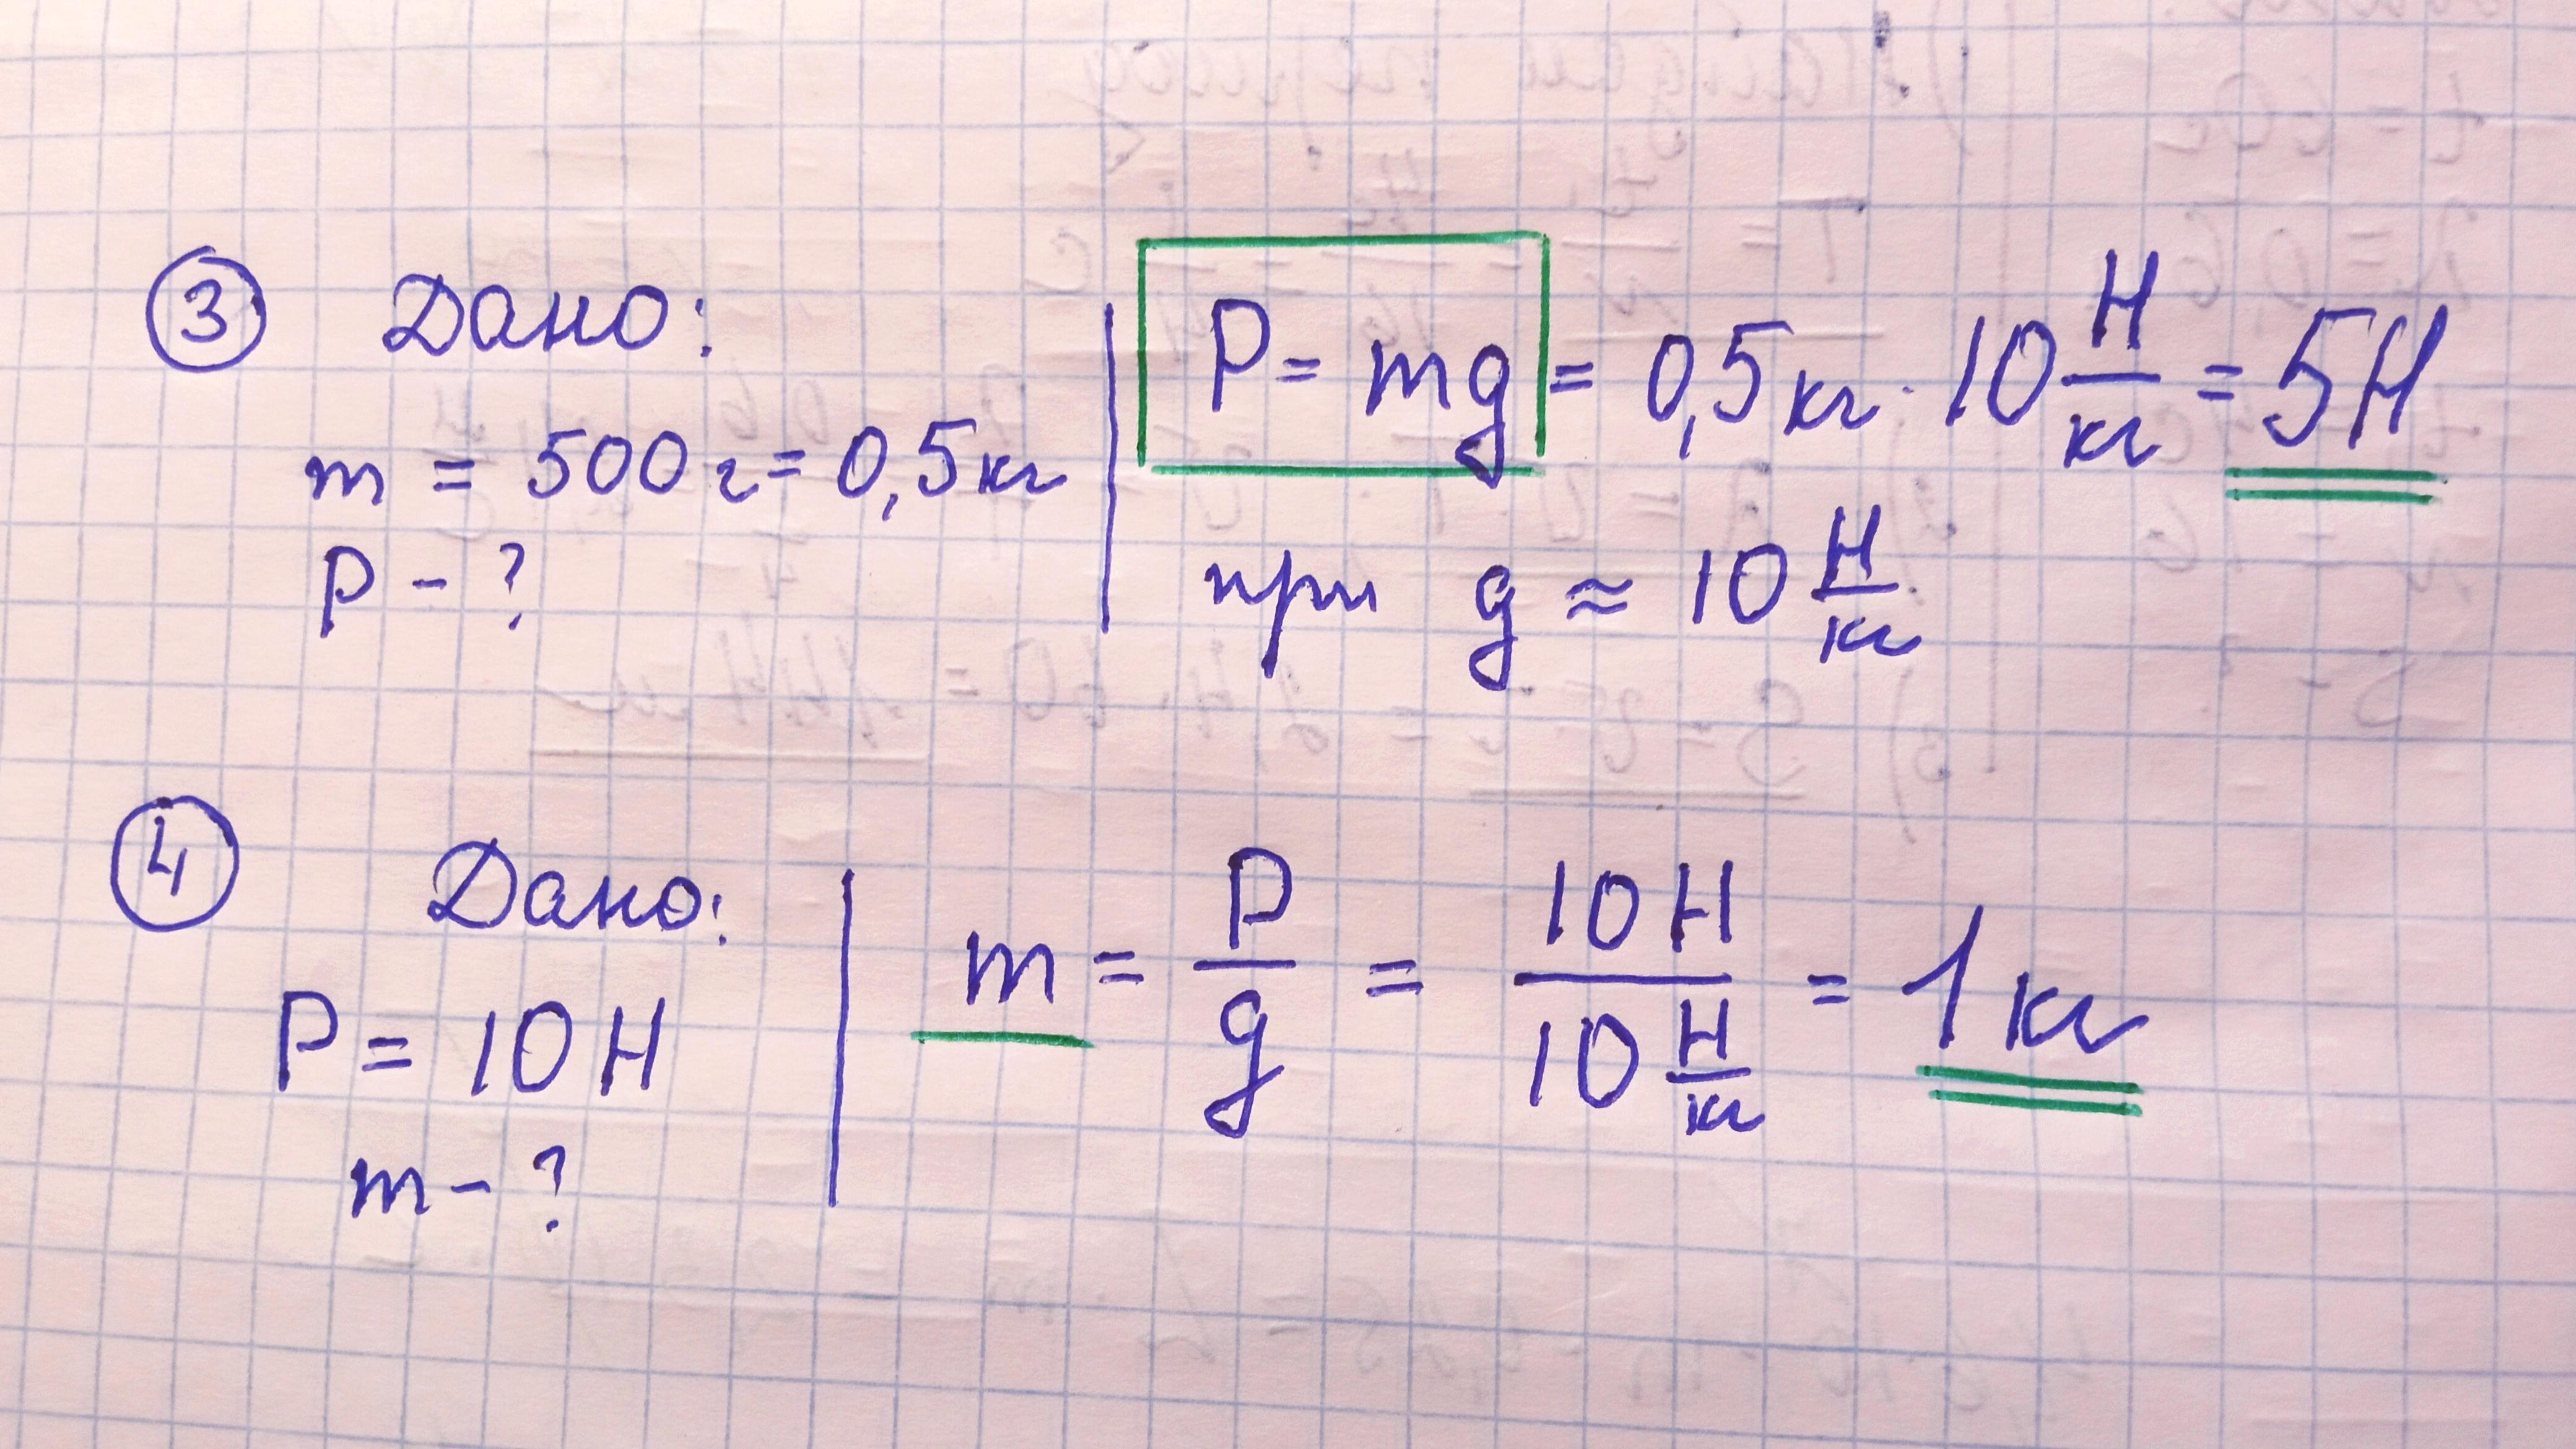 ③ Дано:
m = 500 г = 0,5 кг
P - ?
P = mg = 0,5 кг · 10 Н/кг = 5 Н
при g ≈ 10 Н/кг
④ Дано:
P = 10 Н
m - ?
m = P/g = 10 Н / 10 Н/кг = 1 кг